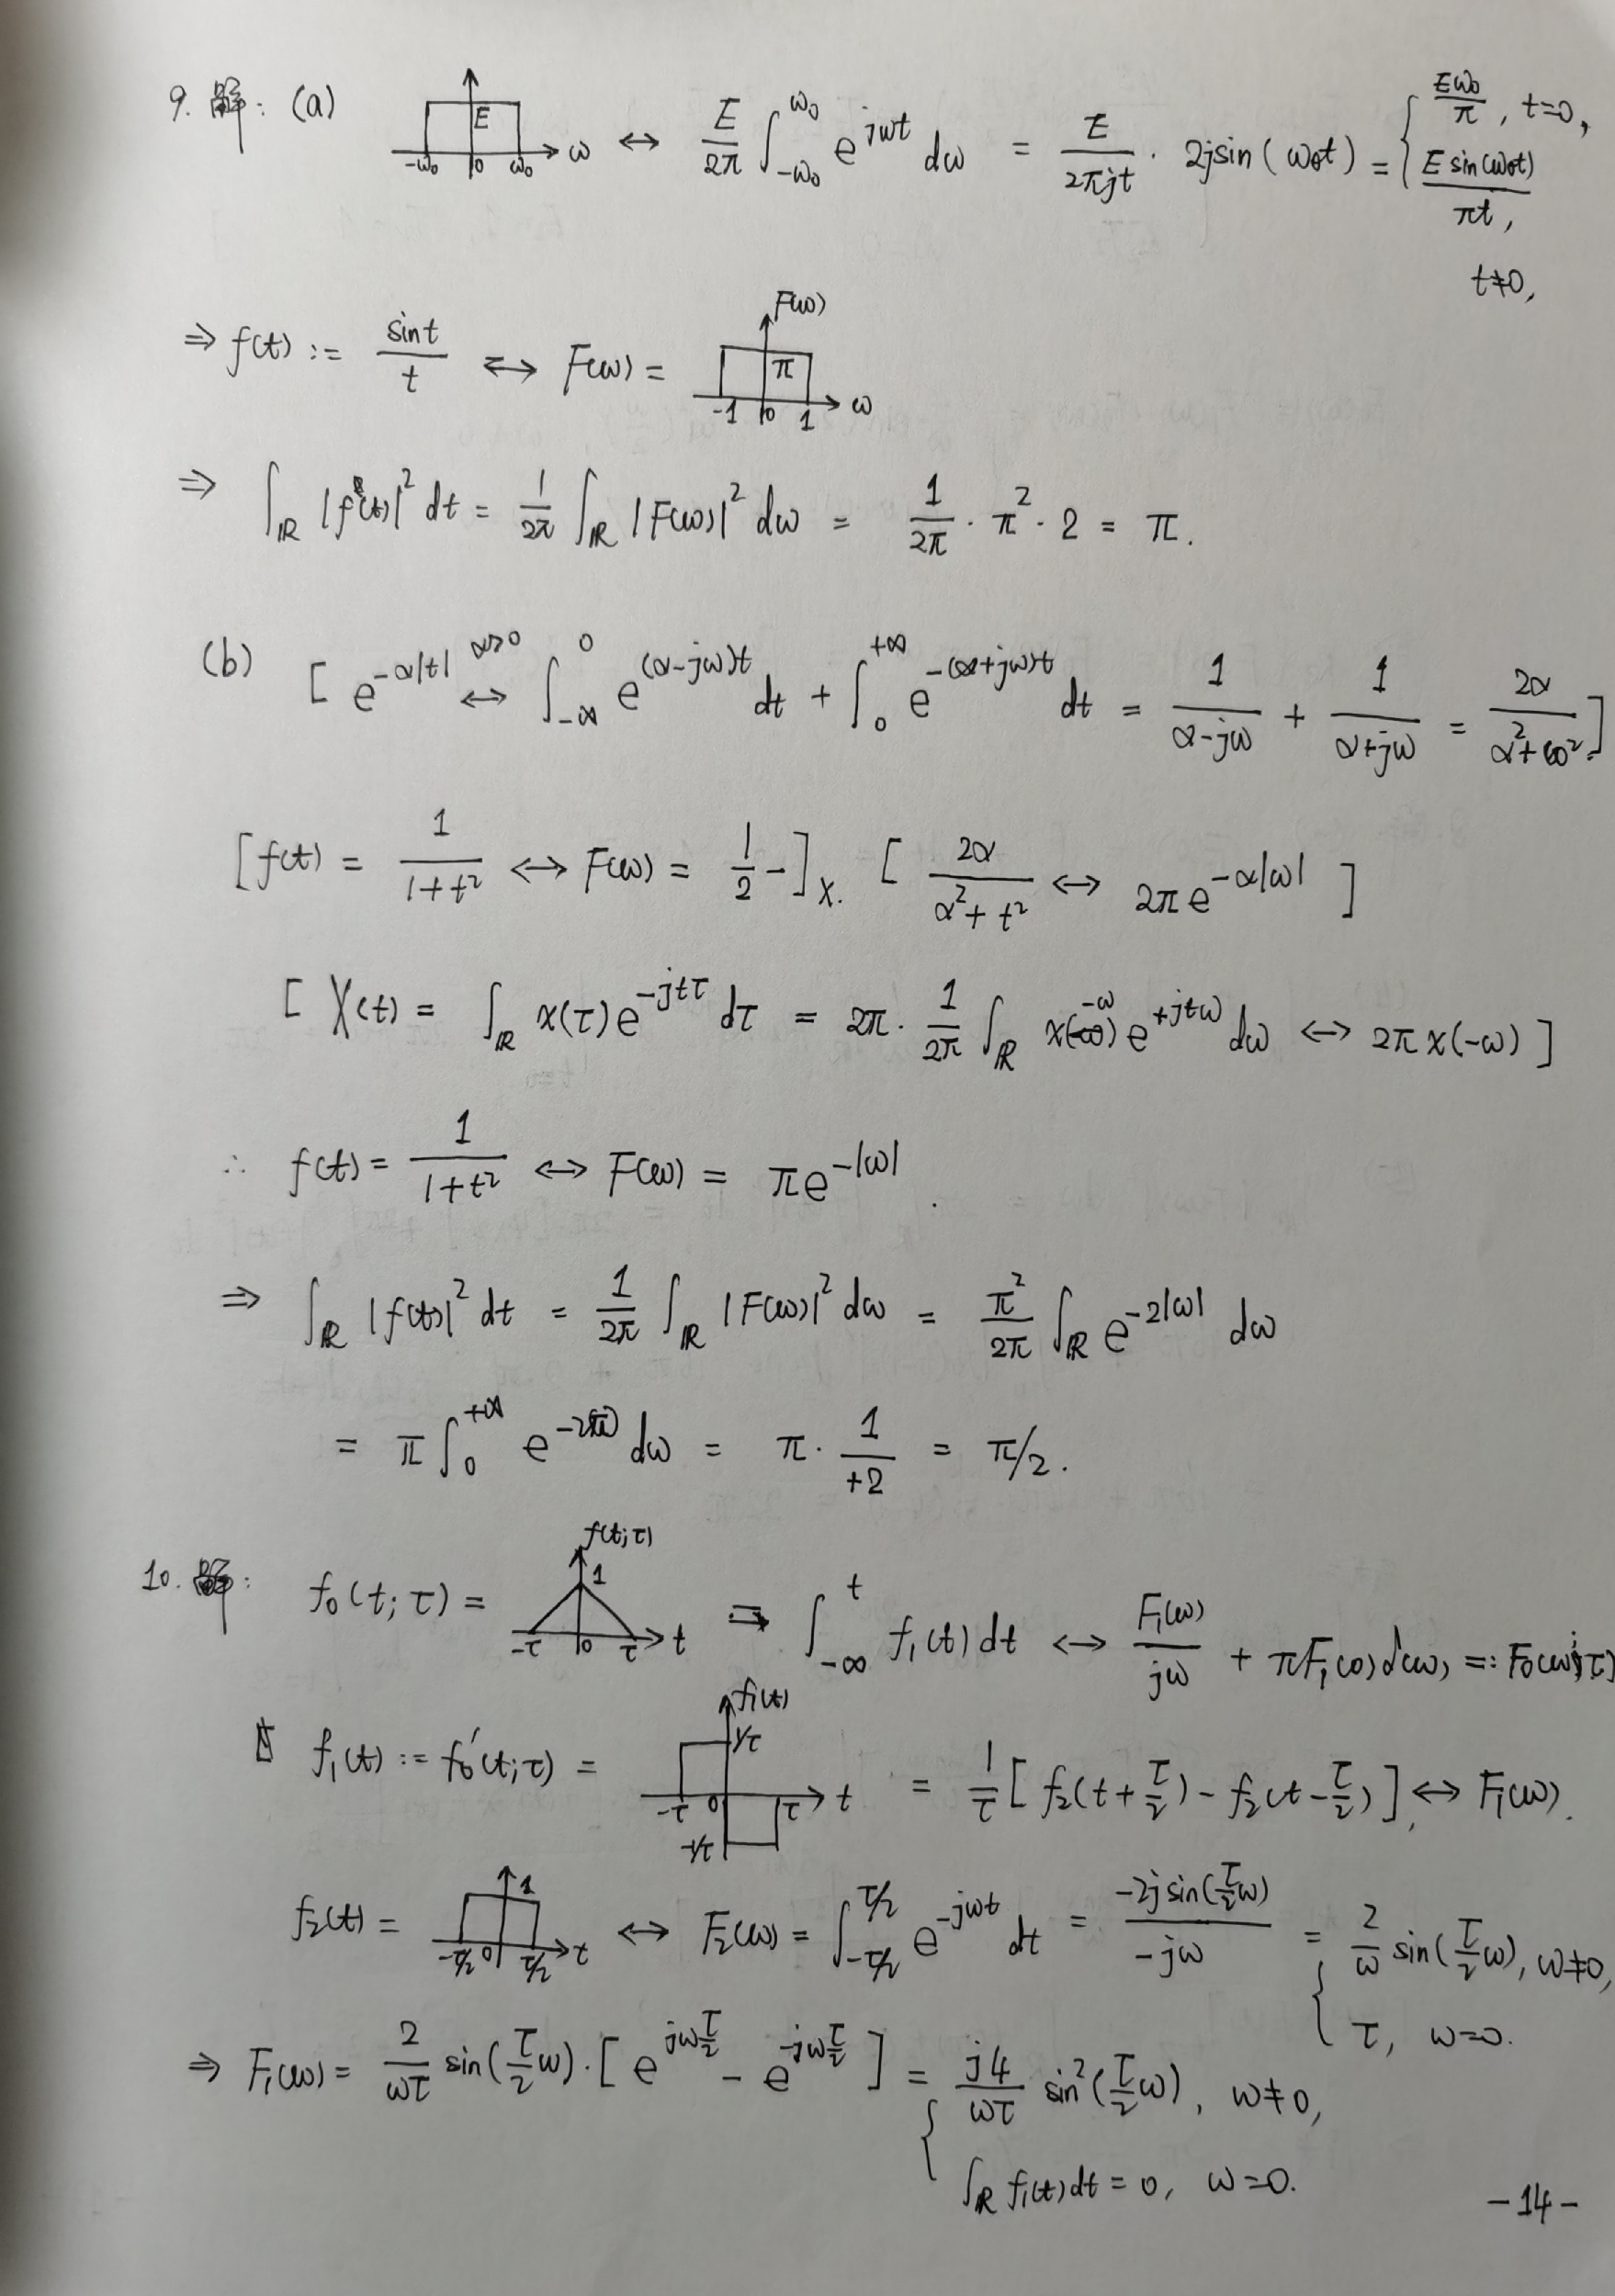 9. 解: (a) E -ω₀ 0 ω₀ ω ↔ E/2π ∫_{-ω₀}^{ω₀} e^{jωt} dω = E/(2πjt) · 2j sin(ω₀t) = { Eω₀/π, t=0, E sin(ω₀t)/(πt), t≠0,
⇒ f(t) := sin t / t ↔ F(ω) = F(ω) π -1 0 1 ω
⇒ ∫_ℝ |f(t)|² dt = 1/2π ∫_ℝ |F(ω)|² dω = 1/2π · π² · 2 = π.
(b) [ e^{-α|t|} ↔^{α>0} ∫_{-∞}^{0} e^{(α-jω)t} dt + ∫_{0}^{+∞} e^{-(α+jω)t} dt = 1/(α-jω) + 1/(α+jω) = 2α/(α²+ω²) ]
[ f(t) = 1/(1+t²) ↔ F(ω) = 1/2 - ] X. [ 2α/(α²+t²) ↔ 2π e^{-α|ω|} ]
[ X(t) = ∫_ℝ x(τ) e^{-jtτ} dτ = 2π · 1/2π ∫_ℝ x(-ω) e^{+jtω} dω ↔ 2π x(-ω) ]
∴ f(t) = 1/(1+t²) ↔ F(ω) = π e^{-|ω|} .
⇒ ∫_ℝ |f(t)|² dt = 1/2π ∫_ℝ |F(ω)|² dω = π²/2π ∫_ℝ e^{-2|ω|} dω
= π ∫_{0}^{+∞} e^{-2ω} dω = π · 1/+2 = π/2 .
10. 解: f₀(t; τ) = f(t;τ) 1 -τ 0 τ t = ∫_{-∞}^{t} f₁(t) dt ↔ F₁(ω)/jω + πF₁(0)δ(ω) =: F₀(ω;τ)
f₁(t) := f₀'(t;τ) = f₁(t) 1/τ -τ 0 τ t -1/τ = 1/τ [ f₂(t+τ/2) - f₂(t-τ/2) ] ↔ F₁(ω).
f₂(t) = 1 -τ/2 0 τ/2 t ↔ F₂(ω) = ∫_{-τ/2}^{τ/2} e^{-jωt} dt = -2j sin(τ/2 ω) / -jω = { 2/ω sin(τ/2 ω), ω≠0, τ, ω=0.
⇒ F₁(ω) = 2/ωτ sin(τ/2 ω) · [ e^{jωτ/2} - e^{-jωτ/2} ] = { j4/ωτ sin²(τ/2 ω), ω≠0,
∫_ℝ f₁(t) dt = 0, ω=0.
-14-